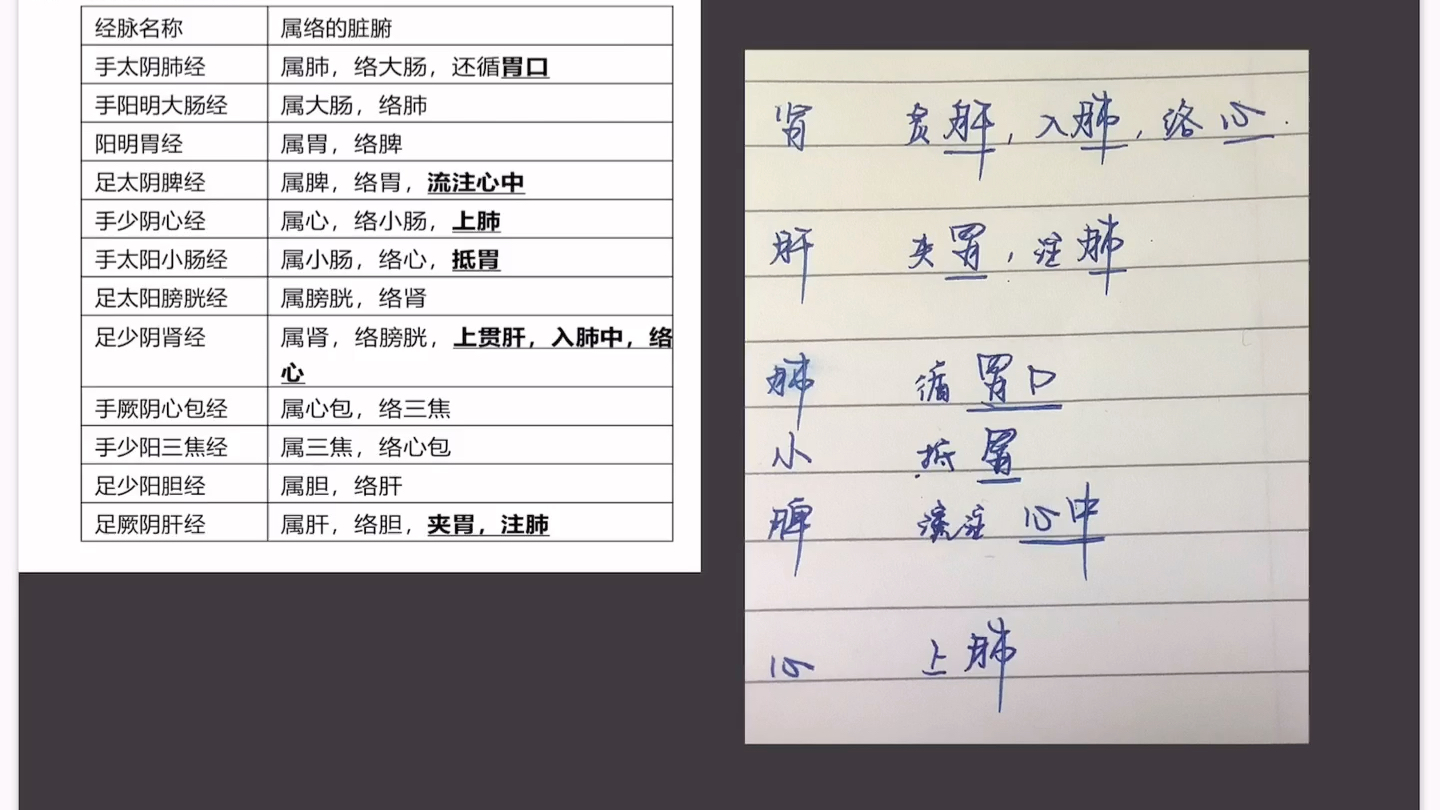 经脉名称 属络的脏腑
手太阴肺经 属肺，络大肠，还循胃口
手阳明大肠经 属大肠，络肺
阳明胃经 属胃，络脾
足太阴脾经 属脾，络胃，流注心中
手少阴心经 属心，络小肠，上肺
手太阳小肠经 属小肠，络心，抵胃
足太阳膀胱经 属膀胱，络肾
足少阴肾经 属肾，络膀胱，上贯肝，入肺中，络
心
手厥阴心包经 属心包，络三焦
手少阳三焦经 属三焦，络心包
足少阳胆经 属胆，络肝
足厥阴肝经 属肝，络胆，夹胃，注肺
肾 贯肝，入肺，络心.
肝 夹胃，注肺
肺 循胃口
小 抵胃
脾 流注心中
心 上肺